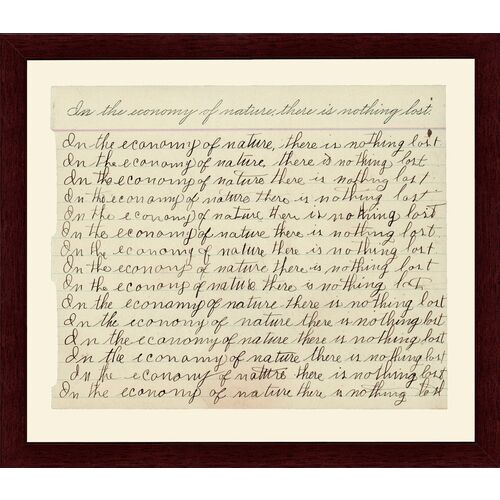 In the economy of nature, there is nothing lost.
In the economy of nature, there is nothing lost
In the economy of nature, there is nothing lost
In the economy of nature there is nothing lost
In the economy of nature there is nothing lost
In the economy of nature there is nothing lost
In the economy of nature there is nothing lost
In the economy of nature there is nothing lost
In the economy of nature there is nothing lost
In the economy of nature there is nothing lost
In the economy of nature there is nothing lost
In the economy of nature there is nothing lost
In the economy of nature there is nothing lost
In the economy of nature there is nothing lost
In the economy of nature there is nothing lost
In the economy of nature there is nothing lost